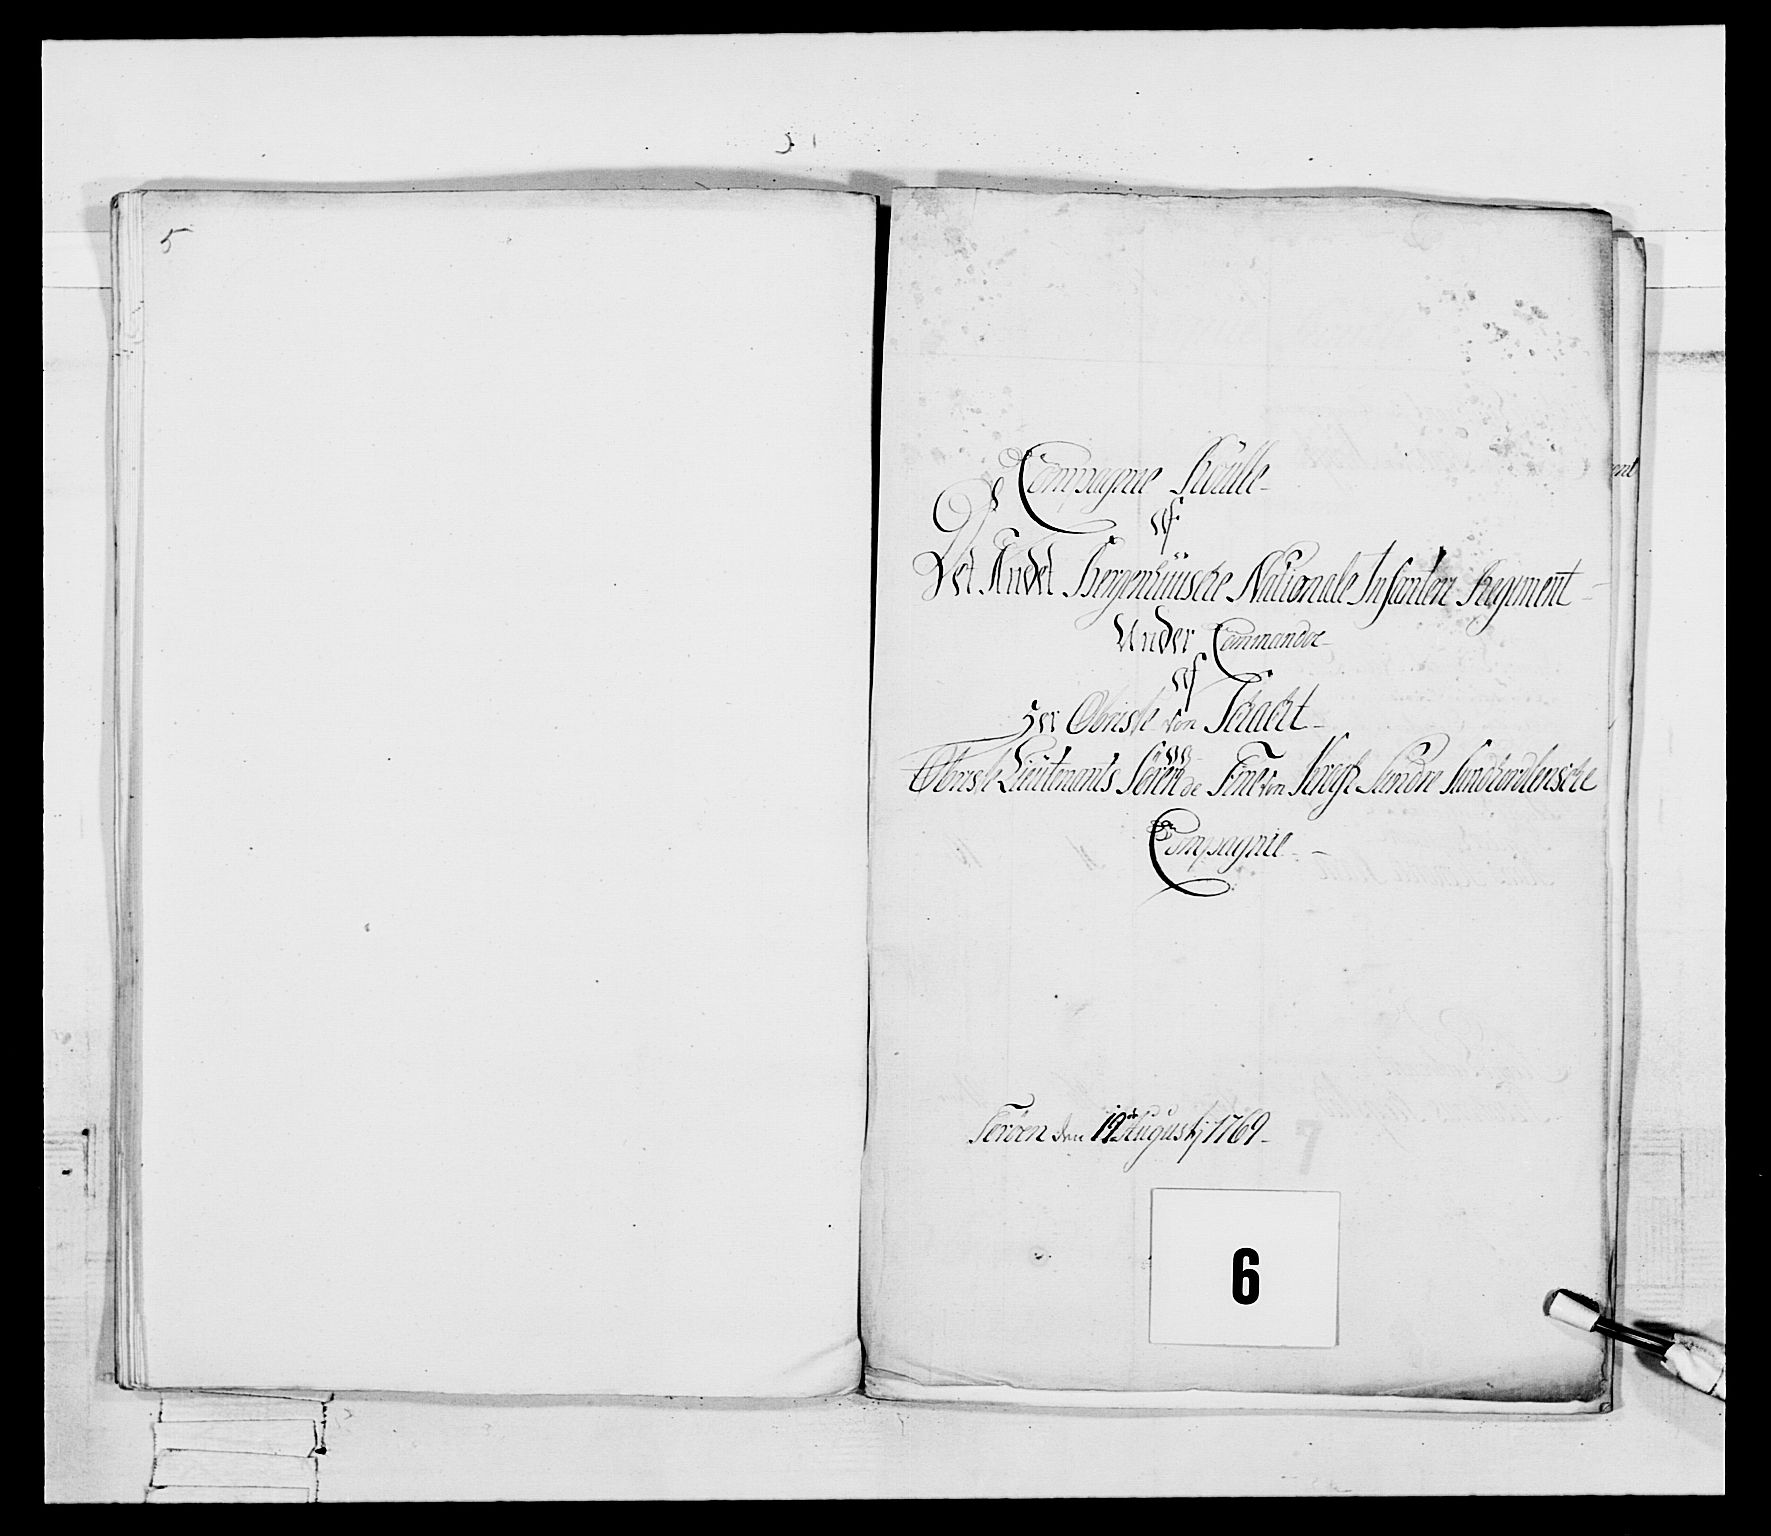 5
Compagnie Roulle
af
Det Andet Bergenhuusche Nationale Infanteri Regiment
Under Commando
af
Her Obriste von Schacht
Obriste Lieutenants Sören de Fine von Krogh Søndre Sundhordlensche
Compagnie
Terøen den 19de Augustj 1769
6
ent